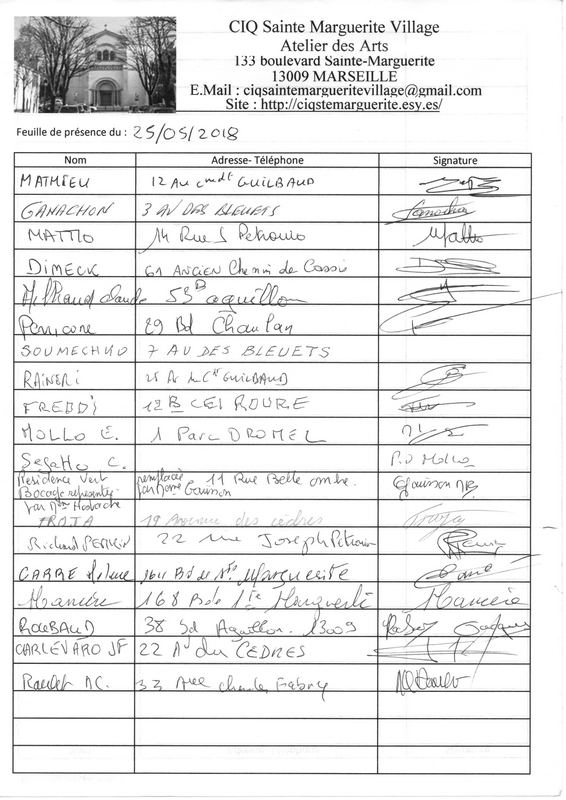 CIQ Sainte Marguerite Village
Atelier des Arts
133 boulevard Sainte-Marguerite
13009 MARSEILLE
E.Mail : ciqsaintemargueritevillage@gmail.com
Site : http://ciqstemarguerite.esy.es/
Feuille de présence du : 25/05/2018
Nom Adresse- Téléphone Signature
MATHIEU 12 Av Cmdt GUILBAUD
GANACHON 3 AV DES BLEUETS
MATTIO 14 Rue J Petronio Mattio
DIMECK 61 ANCIEN Chemin de Cassis
53B aquillon
Perricone 29 Bd Chaulan
SOUMECHND 7 AV DES BLEUETS
RAINERI GUILBAUD
FREDDI 12B CEL ROURE
MOLLO E. 1 Parc DROMEL
Segatto C. P.O Mollo
Résidence Vert remplacée 11 Rue Belle ombre.
Bocage représentée par Mme Gouisson Gouisson
par Mme
TROJA 19 Avenue des cèdres
Richard 22 rue Joseph Pétronio
CARRE Hélène 164 Bd de Ste Marguerite
Mancière 168 Bd de Ste Marguerite Mancière
ROUBAUD 38 Bd Aguillon. 13009
CARLEVARO JF 22 Av du CEDRES
Roulet M.C. 33 Avec Charles Fabry